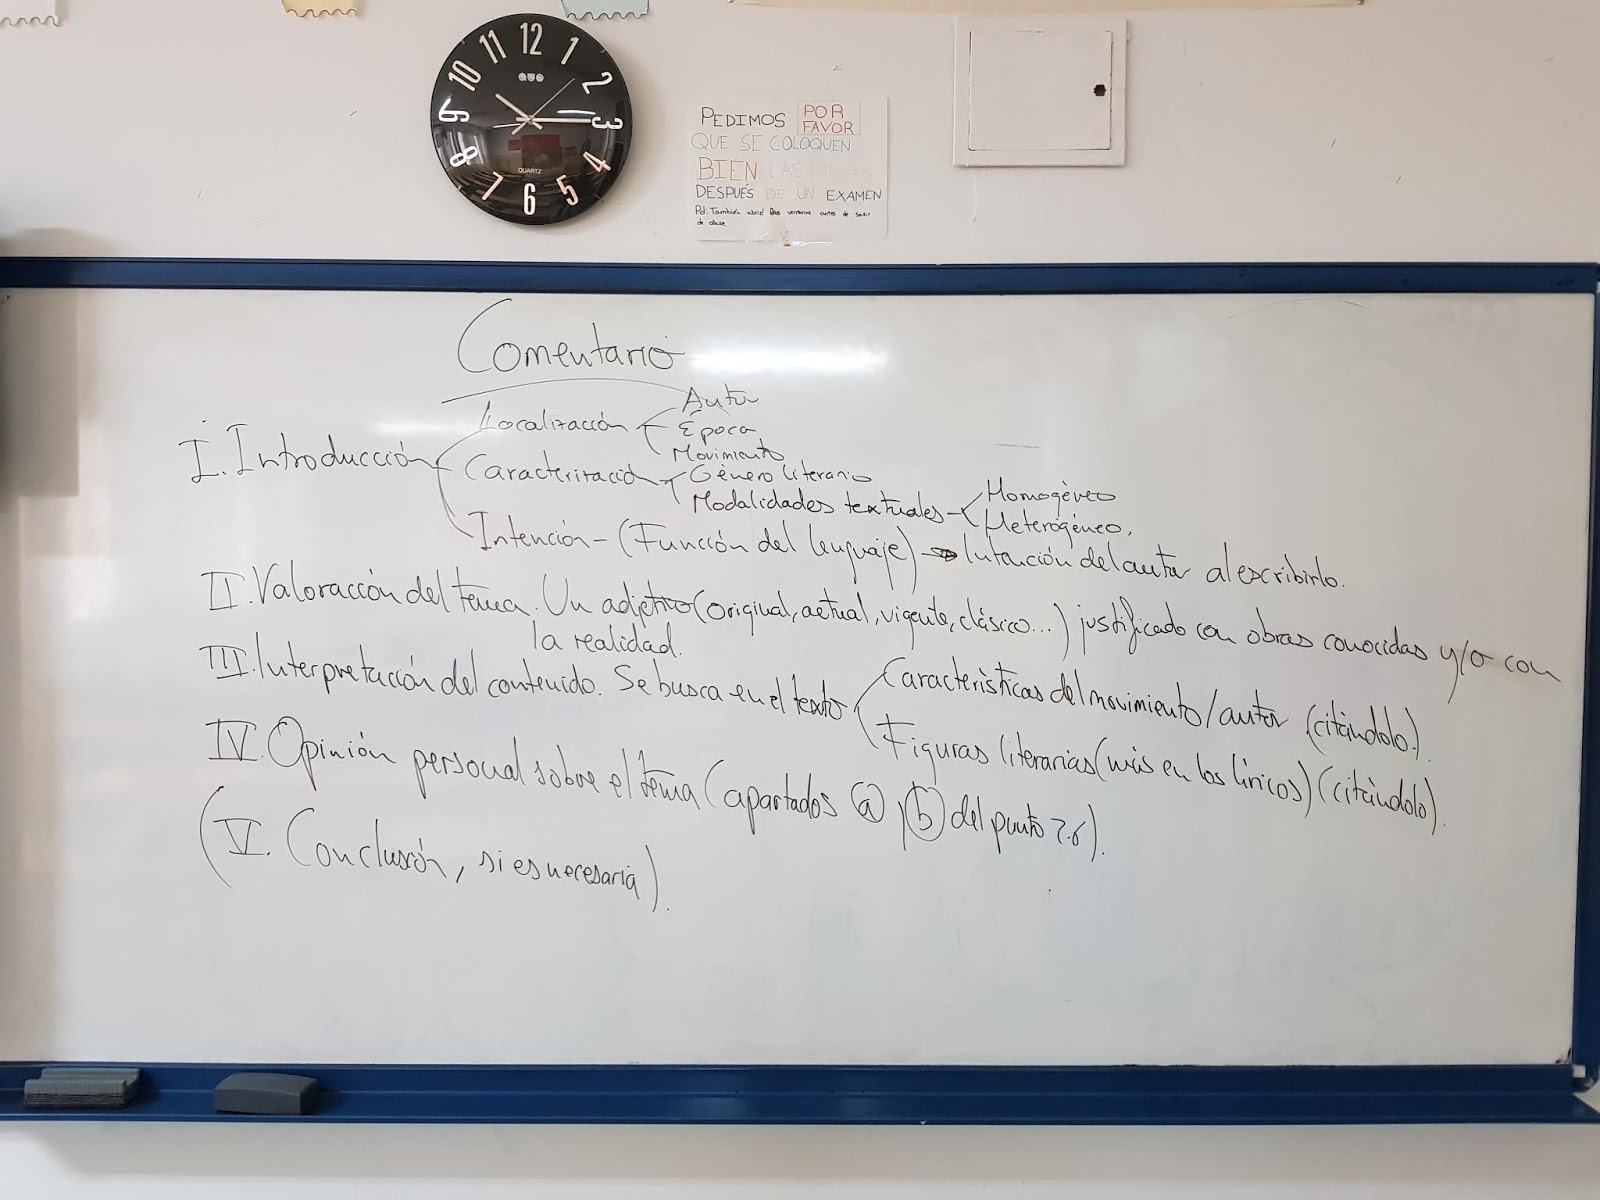 12
11
1
10
2
QUO
9
3
8
4
QUARTZ
7
5
6
PEDIMOS POR FAVOR
QUE SE COLOQUEN
BIEN LAS MESAS
DESPUÉS DE UN EXAMEN
Pd: También abrid las ventanas antes de salir
de clase
Comentario
I. Introducción
Localización
Autor
Época
Movimiento
Caracterización
Género literario
Modalidades textuales
Homogéneo
Heterogéneo.
Intención - (Función del lenguaje) → Intención del autor al escribirlo.
II. Valoración del tema. Un adjetivo (original, actual, vigente, clásico...) justificado con obras conocidas y/o con
la realidad.
III. Interpretación del contenido. Se busca en el texto
Características del movimiento/autor (citándolo).
Figuras literarias (más en los líricos) (citándolo).
IV. Opinión personal sobre el tema (apartados a, b del punto 7.6).
(V. Conclusión, si es necesaria).